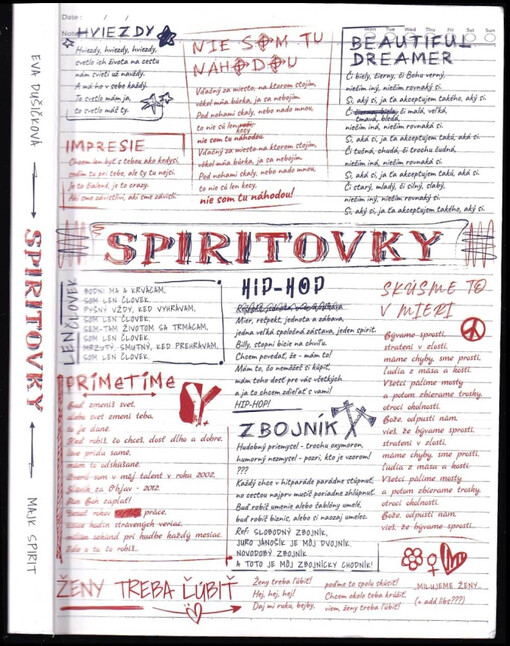 EVA DUŠIČKOVÁ
SPIRITOVKY
MAJK SPIRIT
Date :
Note
Mon Tue Wed Thu Fri Sat Sun
HVIEZDY
Hviezdy, hviezdy, hviezdy,
svetlo ich života na cestu
nám svieti už navždy.
A má ho v sebe každý.
To svetlo mám ja,
to svetlo máš ty.
NIE SOM TU
NÁHODOU
Vďačný za miesto, na ktorom stojím,
vôkol mňa búrka, ja sa nebojím.
Pod nohami skaly, nebo nado mnou,
to nie sú len
kecy
nie som tu náhodou.
Vďačný za miesto, na ktorom stojím,
vôkol mňa búrka, ja sa nebojím.
Pod nohami skaly, nebo nado mnou,
to nie sú len kecy,
nie som tu náhodou!
BEAUTIFUL
DREAMER
Či biely, čierny, či Bohu verný,
nietim iný, nietim rovnaký si.
Si, aký si, ja ťa akceptujem takého, aký si.
Či malá, veľká,
tmavá, bledá,
nietim iná, nietim rovnaká si.
Si, aká si, ja ťa akceptujem takú, aká si.
Či tučná, chudá, či trochu čudná,
nietim iná, nietim rovnaká si.
Si, aká si, ja ťa akceptujem takú, aká si.
Či starý, mladý, či silný, slabý,
nietim iný, nietim rovnaký si.
Si, aký si, ja ťa akceptujem takého, aký si.
IMPRESIE
Chcem len byť s tebou ako kedysi,
vadím tu pri tebe, ale ty tu nejsi.
Je to šialené, je to crazy.
Aké sme závistliví, akí sme závislí.
SPIRITOVKY
LEN ČLOVEK
BODNI MA A KRVÁCAM,
SOM LEN ČLOVEK.
PYŠNÝ VŽDY, KEĎ VYHRÁVAM,
SOM LEN ČLOVEK.
SEM-TAM ŽIVOTOM SA TRMÁCAM,
SOM LEN ČLOVEK.
MRZUTÝ, SMUTNÝ, KEĎ PREHRÁVAM,
SOM LEN ČLOVEK.
HIP-HOP
Mier, rešpekt, jednota a zábava,
jedna veľká spoločná zástava, jeden spirit.
Billy, stopni bicie na chvíľu.
Chcem povedať, že - mám to!
Mám to, čo nemôžeš si kúpiť,
mám toho dosť pre vás všetkých
a ja to chcem zdieľať s vami!
HIP-HOP!
SKÚSME TO
V MIERI
Bývame sprostí,
stratení v zlosti,
máme chyby, sme prostí,
ľudia z mäsa a kostí.
Všetci pálime mosty
a potom zbierame trosky,
otroci okolností.
Bože, odpusti nám,
vieš, že bývame sprostí,
stratení v zlosti,
máme chyby, sme prostí,
ľudia z mäsa a kostí.
Všetci pálime mosty
a potom zbierame trosky,
otroci okolností.
Bože, odpusti nám,
vieš, že bývame sprostí.
PRIMETIME
Buď zmeníš svet,
alebo svet zmení teba,
to je dané.
Keď robíš, čo chceš, dosť dlho a dobre,
love prídu samé,
mám to odskúšané.
Zmenil som v môj talent v roku 2002.
Slávik za Objav - 2012.
Pán Boh zaplať!
Desať rokov práce,
tisíce hodín strávených viac,
milión sekúnd pri hudbe každý mesiac.
Ide o to, čo robíš.
ZBOJNÍK
Hudobný priemysel - trochu oxymoron,
humorný nezmysel - pozri, kto je vzorom!
???
Každý chce v hitparáde parádne stúpnuť,
no cestou najprv musíš poriadne zhlúpnuť.
Buď robíš umenie alebo tabčový umelé,
buď robíš biznis, alebo si naozaj umelec.
Ref: SLOBODNÝ ZBOJNÍK,
JURO JÁNOŠÍK JE MÔJ DVOJNÍK,
NOVODOBÝ ZBOJNÍK
A TOTO JE MÔJ ZBOJNÍCKY CHODNÍK!
ŽENY TREBA ĽÚBIŤ
Ženy treba ľúbiť!
Hej, hej, hej!
Daj mi ruku, bejby,
poďme to spolu skúsiť!
Chcem okolo teba krúžiť,
viem, ženy treba ľúbiť!
MILUJEME ŽENY...
(+ add libs???)